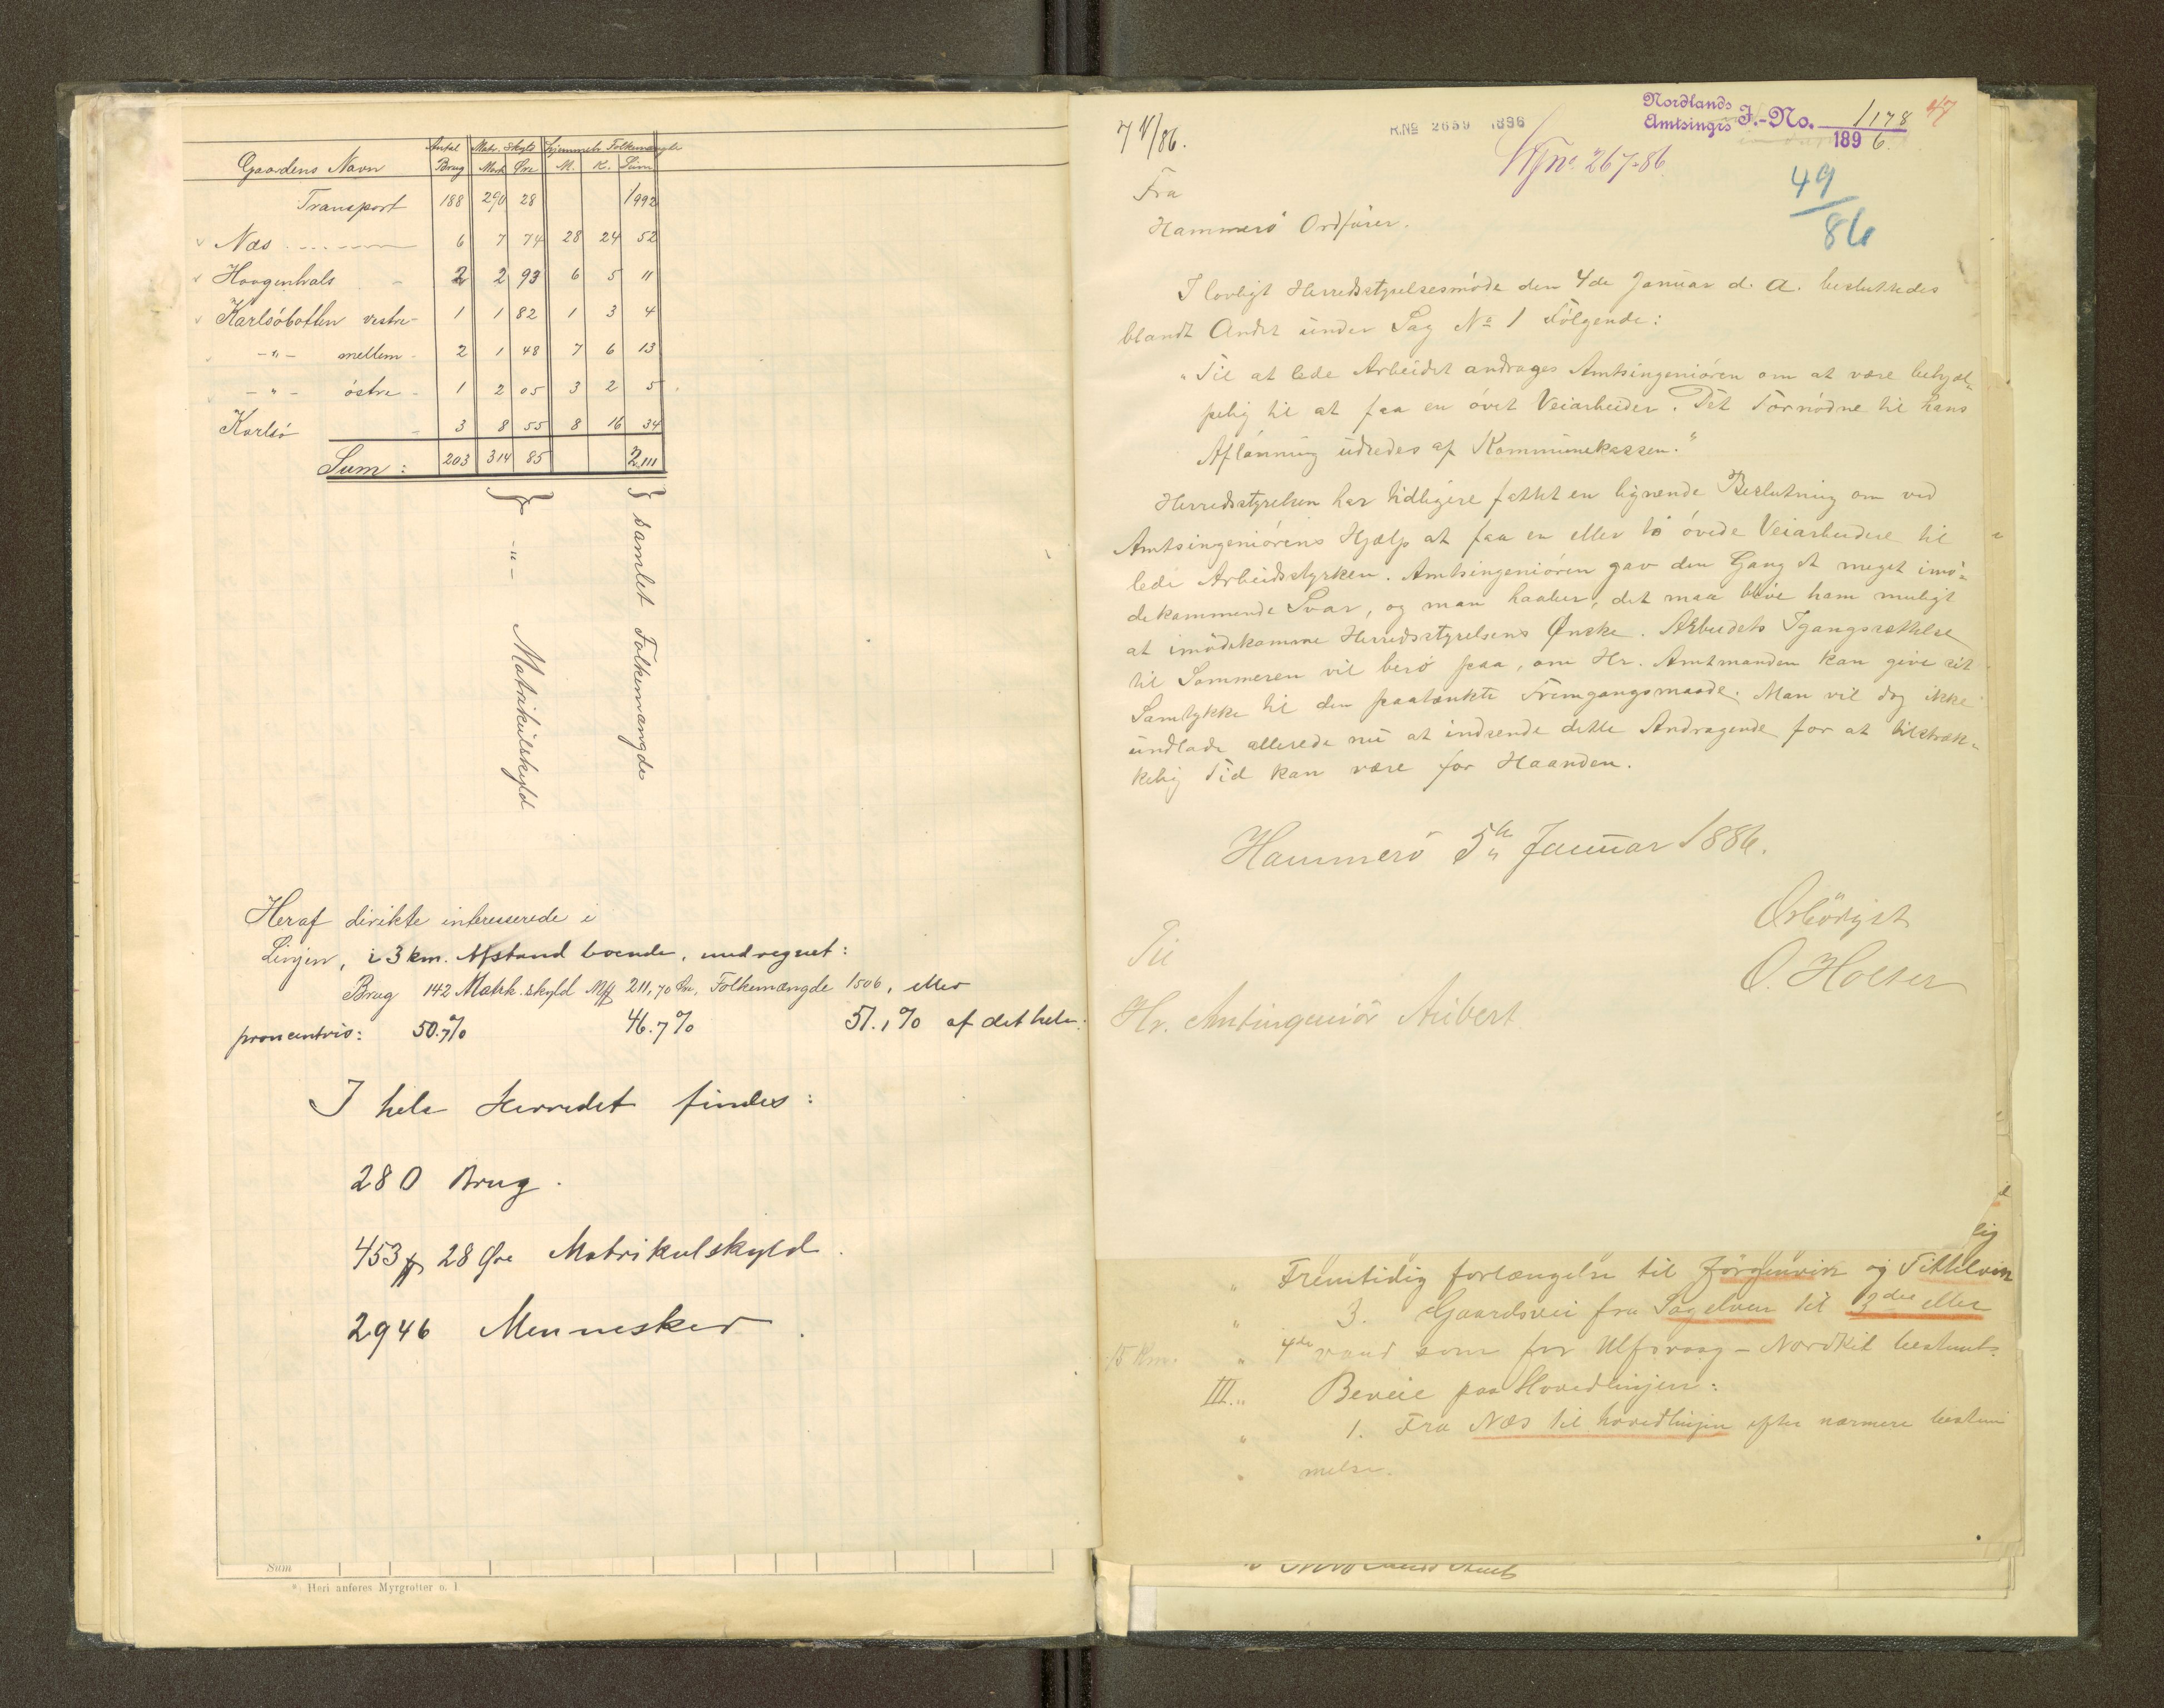 Gaardens Navn Antal Brug Matr. Skyld Mark Øre Hjemmeh. Folkemængde M. K. Sum
Transport 188 290 28 1992
Næs 6 7 74 28 24 52
Haagenhals 2 2 93 6 5 11
Karlsöbotten vestre 1 1 82 1 3 4
-"- mellem 2 1 48 7 6 13
-"- östre 1 2 05 3 2 5
Karlsö 3 8 55 8 16 34
Sum: 203 314 85 2111
} samlet Folkemængde
} -"- Matrikulskyld
Heraf direkte interesserede i
Linjen, i 3 km. Afstand boende, medregnet:
Brug 142 Matrk. skyld Mk 211,70 Øre, Folkemængde 1506, eller
procentvis: 50.7% 46.7% 51.1% af det hele.
I hele Herredet findes:
280 Brug.
453 28 Øre Matrikulskyld.
2946 Mennesker.
Sum
*. Heri anføres Myrgrøfter o. l.
7 1/86.
R.No 2659 1896
Nordlands Amtsingrs J.-No. 1178
1896.
47
Kjno. 267-86
49
86
Fra
Hammerö Ordfører.
I lovligt Herredsstyrelsesmöde den 4de Januar d. A. besluttedes
blandt Andet under Sag No 1 Følgende:
"Til at lede Arbeidet andrages Amtsingeniören om at være behjæl-
pelig til at faa en övet Veiarbeider. Det Fornödne til hans
Aflönning udredes af Kommunekassen."
Herredsstyrelsen har tidligere fattet en lignende Beslutning om ved
Amtsingeniörens Hjælp at faa en eller to övede Veiarbeidere til
lede Arbeidsstyrken. Amtsingeniören gav den Gang et meget imö-
dekommende Svar, og man haaber, det maa blive ham muligt
at imödekomme Herredsstyrelsens Ønske. Arbeidets Igangsættelse
til Sommeren vil berö paa, om Hr. Amtmanden kan give sit
Samtykke til den paatænkte Fremgangsmaade. Man vil dog ikke
undlade allerede nu at indsende dette Andragende for at tilstræk-
kelig Tid kan være for Haanden.
Hammerö 5te Januar 1886.
Ærbödigst
O. Holser
Til
Hr. Amtingeniör Aubert
lig
" Fremtidig forlængelse til Jörgenvik og Tittelvik
" 3. Gaardsvei fra Sagelven til 3die eller
15 Km. " 4de vand som for Ulfsvaag - Nordkil bestemt.
III. " Beveie paa Hovedlinjen:
" 1. Fra Næs til hovedlinjen efter nærmere bestem
" melse.
Nordlands Amt